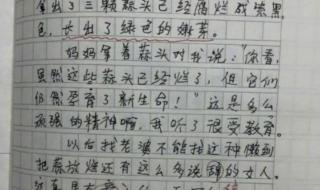 拿出了三颗蒜头已经腐烂成紫黑
色，长出了绿色的嫩芽。
妈妈拿着蒜头对我说："你看，
虽然这些蒜头已经烂了，但它们
仍然孕育了新生命！"这是多么
顽强的精神啊，我听了很受教育。
以后找老婆不能找这种懒到
把蒜放烂还有这么多说的女人。